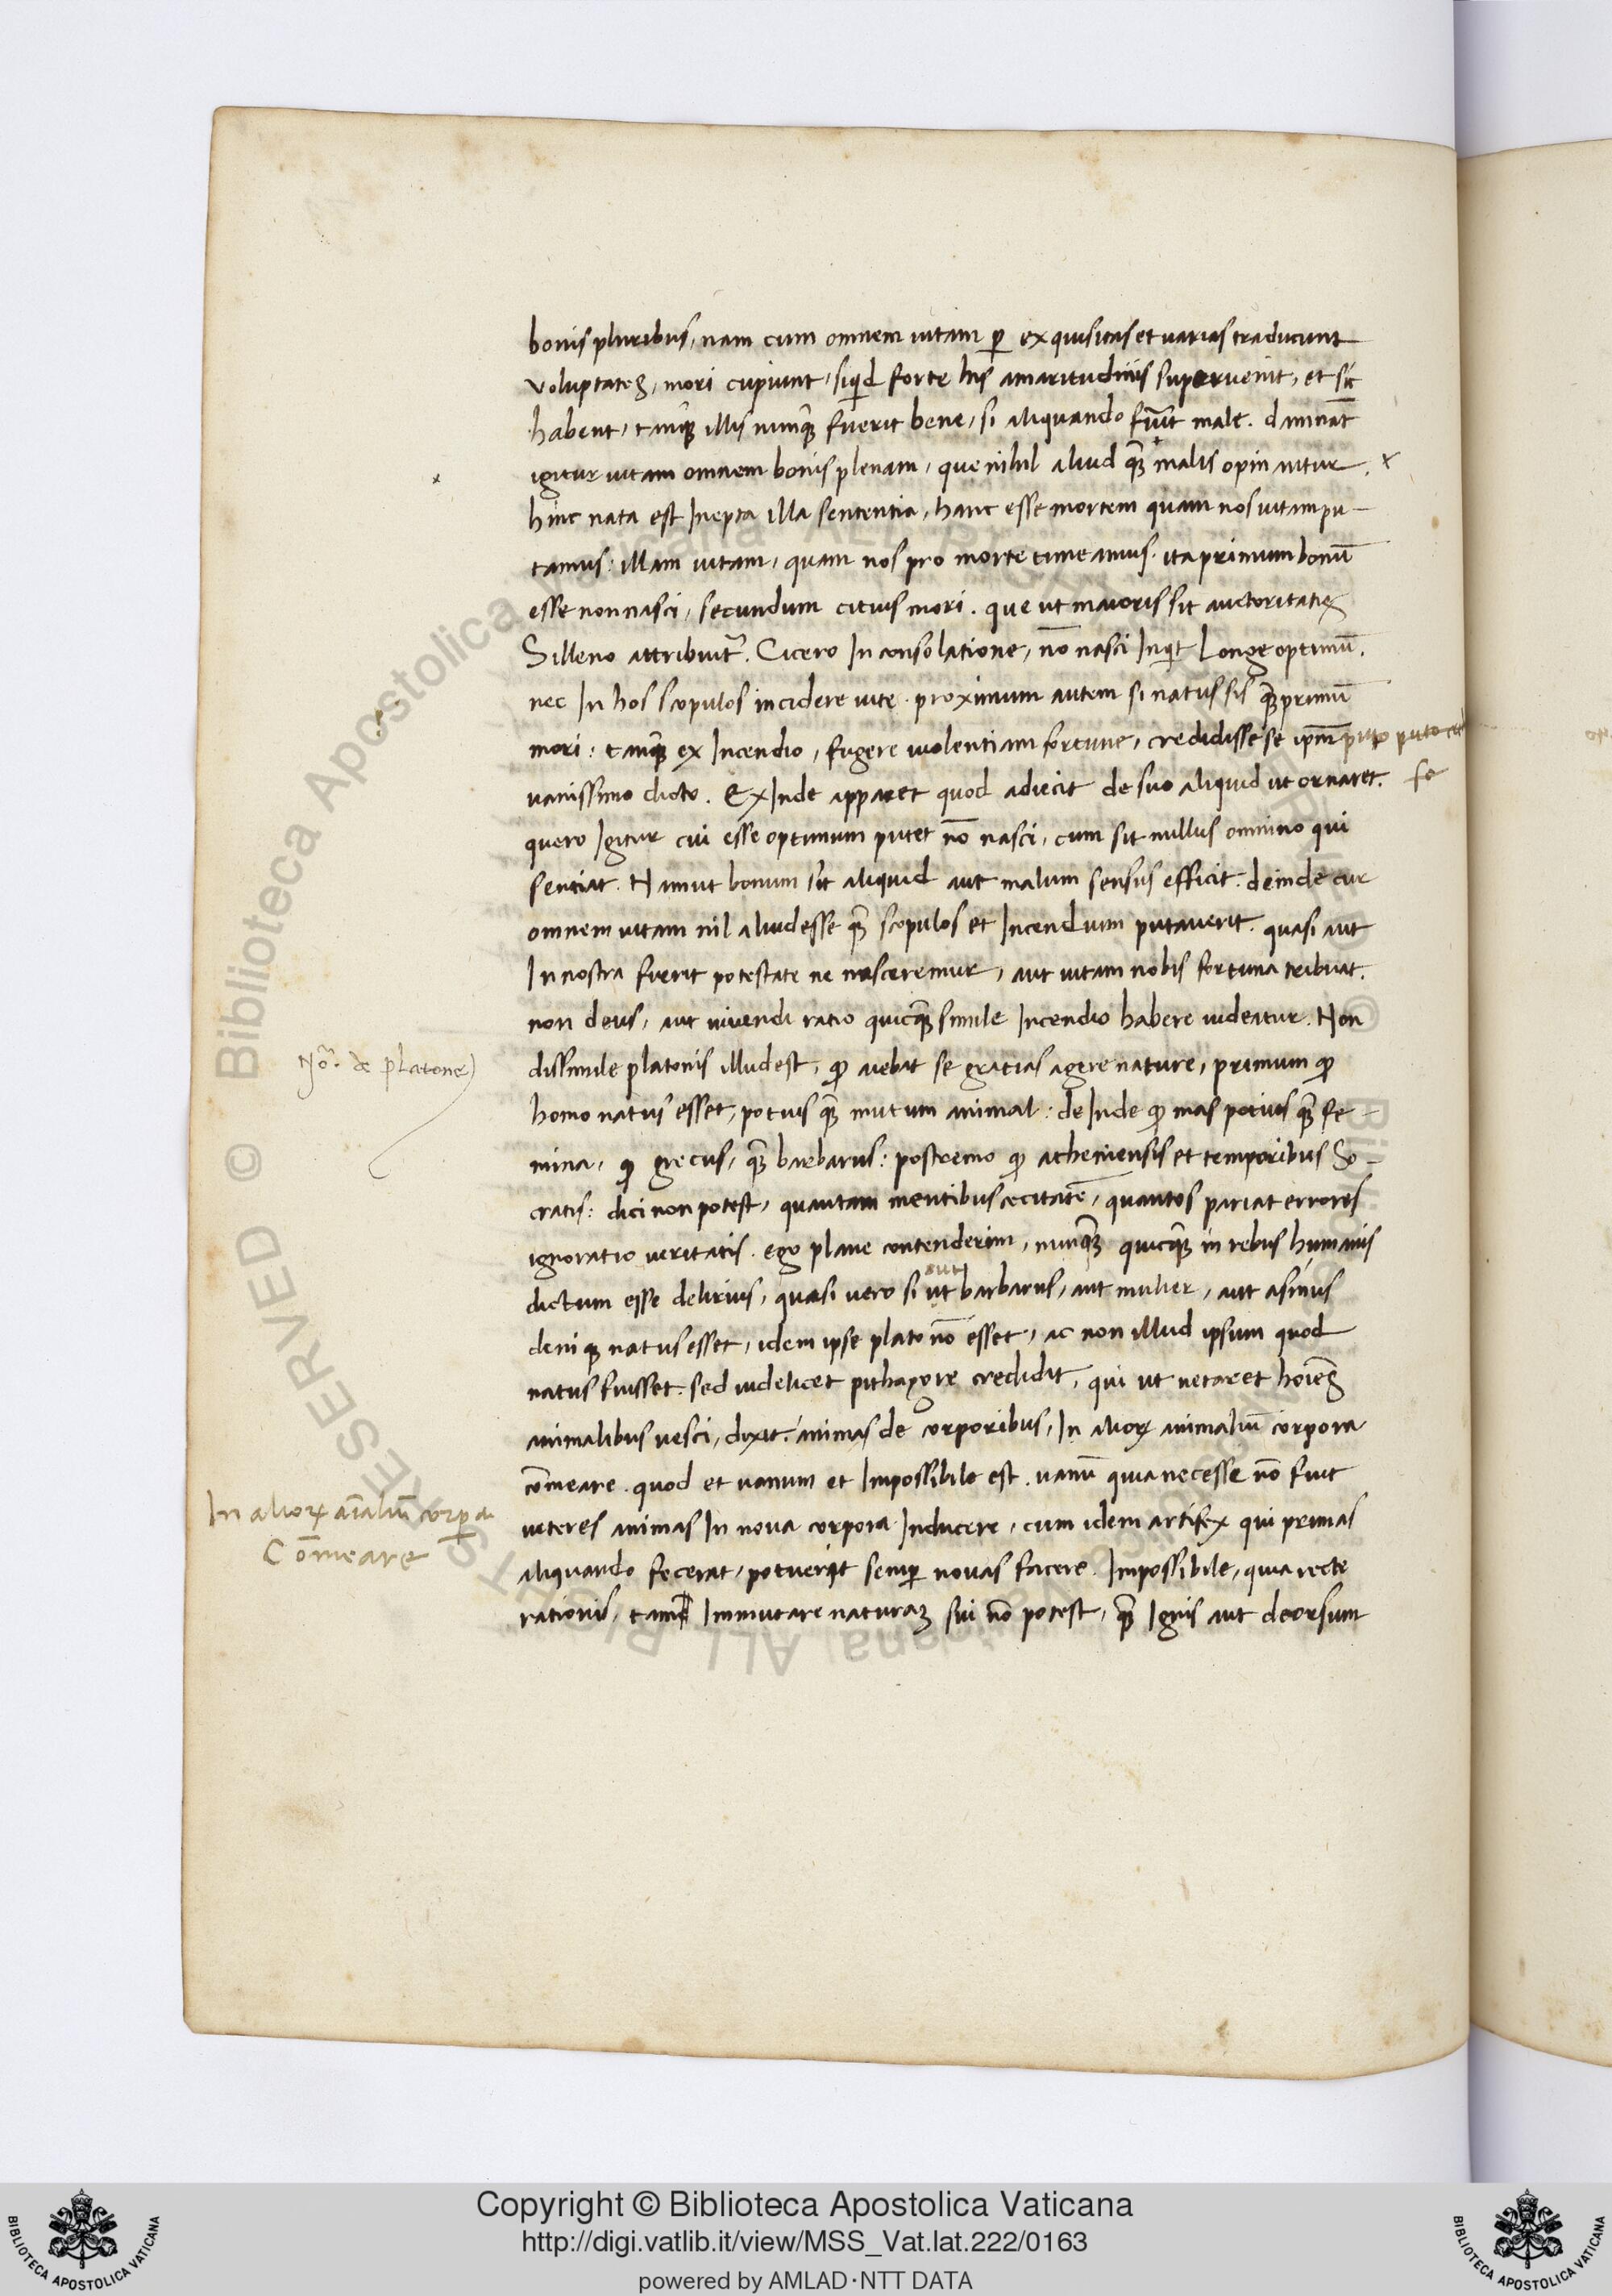 bonis pluribus, nam cum omnem uitam ꝑ exquisitas et uarias traducunt
voluptates, mori cupiunt, siqͥd forte his amaritudinis superuenit, et sic
habent, tanq̄ȝ illis nunq̄ȝ fuerit bene, si aliquando fuit male. damnāt
igitur uitam omnem bonis plenam, que nihil aliud q̄ȝ malis opinantur.
hinc nata est Inepta illa sententia, hanc esse mortem quam nos uitam pu-
tamus: illam uitam, quam nos pro morte timeamus. ita primum bonū
esse non nasci, secundum citius mori. que ut maioris sit auctoritatis
Silleno attribuitꝛ̃. Cicero In consolatione, nō nasci Inqͥt Longe optimū.
nec In hos scopulos incidere uite. proximum autem si natus sis q̄ȝ primū
mori: tanq̄ȝ ex Incendio, fugere uiolentiam fortune, credidisse se ip̄m
uanissimo dicto. Ex Inde apparet quod adiecit de suo aliquid ut ornaret.
quero Igitur cui esse optimum putet nō nasci, cum sit nullus omnino qui
sentiat. Nam ut bonum sit aliquid aut malum sensus efficit. deinde cur
omnem uitam nil aliud esse q̄ȝ scopulos et Incendium putauerit. quasi aut
In nostra fuerit potestate ne nasceremur, aut uitam nobis fortuna tribuat.
non deus, aut uiuendi ratio quicq̄ȝ simile Incendio habere uideatur. Non
dissimile platonis illud est, ꝙ aiebat se gratias agere nature, primum ꝙ
homo natus esset, potius q̄ȝ mutum animal: de Inde ꝙ mas potius q̄ȝ fe-
mina, ꝙ grecus, q̄ȝ barbarus: postremo ꝙ atheniensis et temporibus So-
cratis: dici non potest, quantam mentibus cecitatē, quantos pariat errores
ignoratio ueritatis. ego plane contenderim, nunq̄ȝ quicq̄ȝ in rebus humanis
dictum esse delirius, quasi uero si aut barbarus, aut mulier, aut asinus
deniqȝ natus esset, idem ipse plato nō esset, ac non illud ipsum quod
natus fuisset. sed uidelicet pithagore credidit, qui ut uetaret hoīes
animalibus uesci, dixit. animas de corporibus, In alioꝝ animaliū corpora
cōmeare. quod et uanum et Impossibile est. uanū quia necesse nō fuit
ueteres animas In noua corpora Inducere, cum idem artifex qui primas
aliquando fecerat, potuerit semꝑ nouas facere. Impossibile, quia recte
rationis, Immutare naturaȝ sui nō potest, q̄ȝ Ignis aut deorsum
Nō. de platone
In alioꝝ aīaliū corpora
Cōmeare